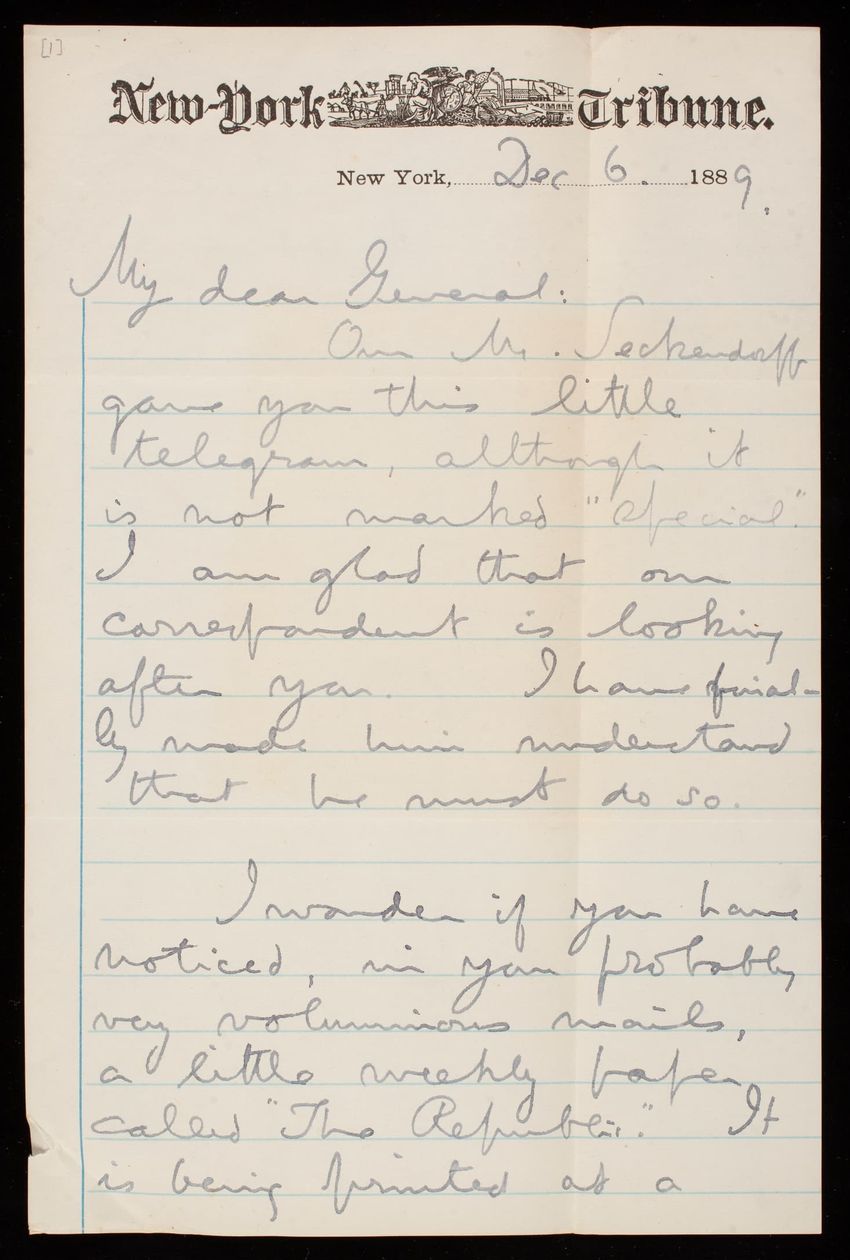 [1]
New-York Tribune.
New York, Dec 6. 1889.
My dear General:
Our Mr. Seckendorff
gave you this little
telegram, although it
is not marked "special."
I am glad that our
correspondent is looking
after you. I have final-
ly made him understand
that he must do so.
I wonder if you have
noticed, in your probably
very voluminous mails,
a little weekly paper
called "The Republic." It
is being printed at a